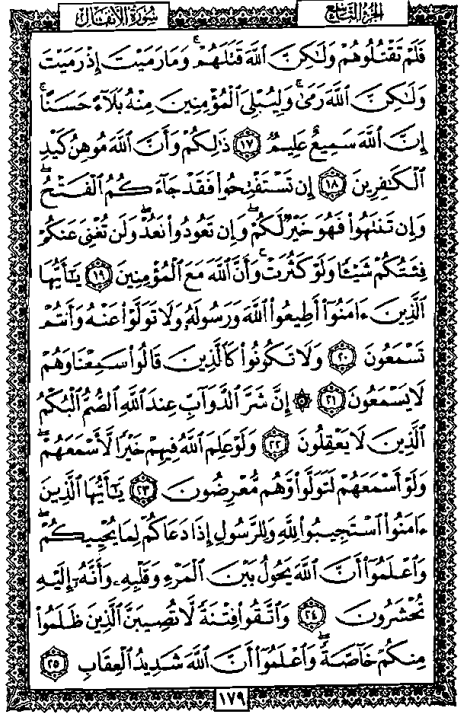 الجزء التاسع
سورة الأنفال
فَلَمْ تَقْتُلُوهُمْ وَلَٰكِنَّ ٱللَّهَ قَتَلَهُمْ ۚ وَمَا رَمَيْتَ إِذْ رَمَيْتَ
وَلَٰكِنَّ ٱللَّهَ رَمَىٰ ۚ وَلِيُبْلِيَ ٱلْمُؤْمِنِينَ مِنْهُ بَلَآءً حَسَنًا ۚ
إِنَّ ٱللَّهَ سَمِيعٌ عَلِيمٌ ١٧ ذَٰلِكُمْ وَأَنَّ ٱللَّهَ مُوهِنُ كَيْدِ
ٱلْكَٰفِرِينَ ١٨ إِن تَسْتَفْتِحُوا۟ فَقَدْ جَآءَكُمُ ٱلْفَتْحُ ۖ
وَإِن تَنتَهُوا۟ فَهُوَ خَيْرٌ لَّكُمْ ۖ وَإِن تَعُودُوا۟ نَعُدْ ۖ وَلَن تُغْنِىَ عَنكُمْ
فِئَتُكُمْ شَيْـًٔا وَلَوْ كَثُرَتْ ۚ وَأَنَّ ٱللَّهَ مَعَ ٱلْمُؤْمِنِينَ ١٩ يَٰٓأَيُّهَا
ٱلَّذِينَ ءَامَنُوٓا۟ أَطِيعُوا۟ ٱللَّهَ وَرَسُولَهُۥ وَلَا تَوَلَّوْا۟ عَنْهُ وَأَنتُمْ
تَسْمَعُونَ ٢٠ وَلَا تَكُونُوا۟ كَٱلَّذِينَ قَالُوا۟ سَمِعْنَا وَهُمْ
لَا يَسْمَعُونَ ٢١ ۞ إِنَّ شَرَّ ٱلدَّوَآبِّ عِندَ ٱللَّهِ ٱلصُّمُّ ٱلْبُكْمُ
ٱلَّذِينَ لَا يَعْقِلُونَ ٢٢ وَلَوْ عَلِمَ ٱللَّهُ فِيهِمْ خَيْرًا لَّأَسْمَعَهُمْ ۖ
وَلَوْ أَسْمَعَهُمْ لَتَوَلَّوا۟ وَّهُم مُّعْرِضُونَ ٢٣ يَٰٓأَيُّهَا ٱلَّذِينَ
ءَامَنُوا۟ ٱسْتَجِيبُوا۟ لِلَّهِ وَلِلرَّسُولِ إِذَا دَعَاكُمْ لِمَا يُحْيِيكُمْ ۖ
وَٱعْلَمُوٓا۟ أَنَّ ٱللَّهَ يَحُولُ بَيْنَ ٱلْمَرْءِ وَقَلْبِهِۦ وَأَنَّهُۥٓ إِلَيْهِ
تُحْشَرُونَ ٢٤ وَٱتَّقُوا۟ فِتْنَةً لَّا تُصِيبَنَّ ٱلَّذِينَ ظَلَمُوا۟
مِنكُمْ خَآصَّةً ۖ وَٱعْلَمُوٓا۟ أَنَّ ٱللَّهَ شَدِيدُ ٱلْعِقَابِ ٢٥
١٧٩